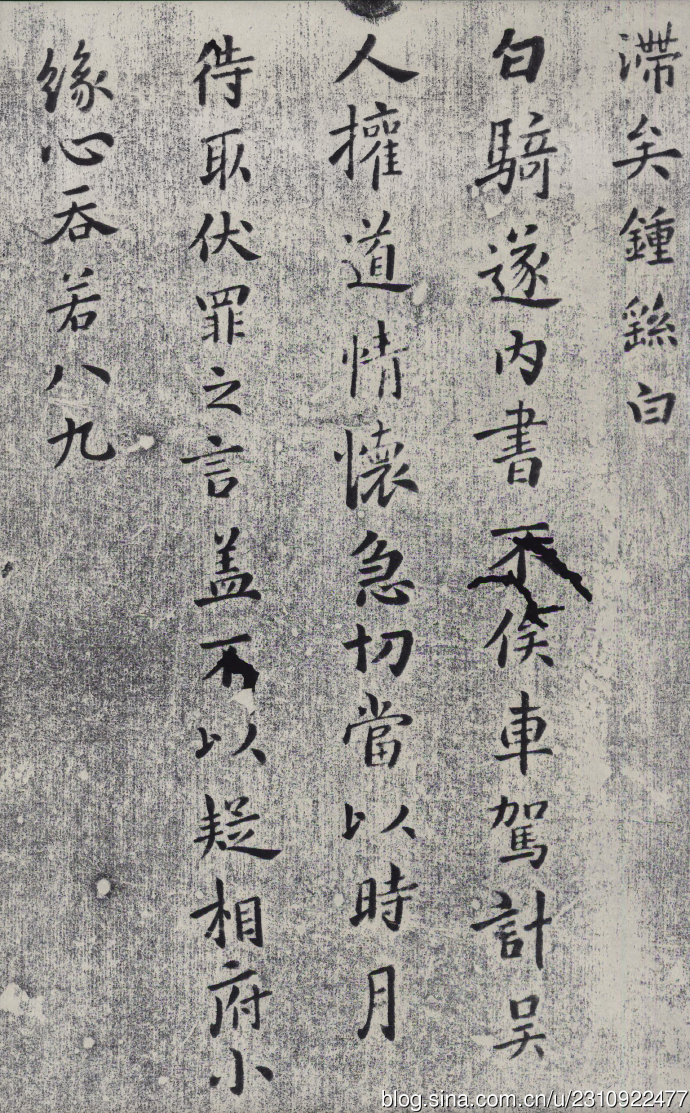 滯矣鍾繇白
白騎遂內書不俟車駕計吳
人權道情懷急切當以時月
待取伏罪之言蓋不以疑相府小
緣心吞若八九
blog.sina.com.cn/u/2310922477